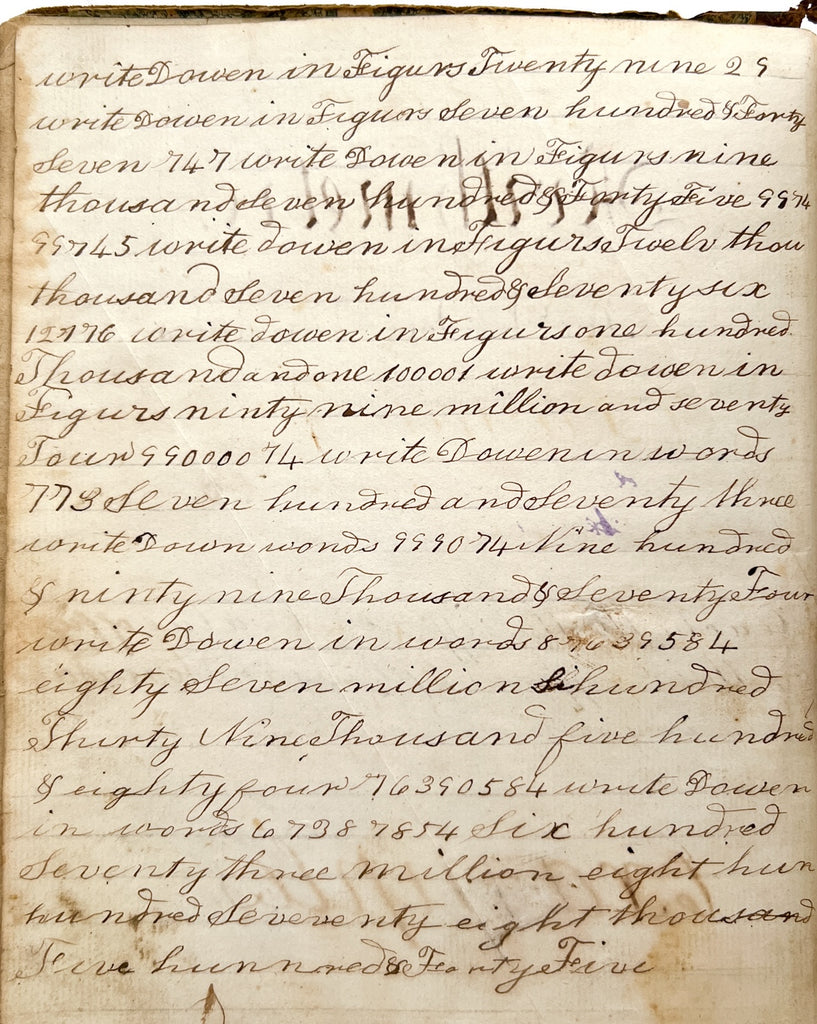 write Dowen in Figurs Twenty nine 29
write Dowen in Figurs Seven hundred & Forty
Seven 747 write Dowen in Figurs nine
thousand Seven hundred & Forty Five 9974
99745 write dowen in Figurs Twelv thou
thousand Seven hundred & Seventy six
12776 write dowen in Figurs one hundred
Thousand and one 100001 write dowen in
Figurs ninty nine million and seventy
Four 99000074 write Dowen in words
773 Seven hundred and Seventy three
write Down words 999074 Nine hundred
& ninty nine Thousand & Seventy Four
write Dowen in words 87639584
eighty Seven million Si hundred
Thirty Nine Thousand five hundred
& eighty four 76390584 write Dowen
in words 67387854 Six hundred
Seventy three million eight hun
hundred Seveventy eight thousand
Five hunnred & Forty Five